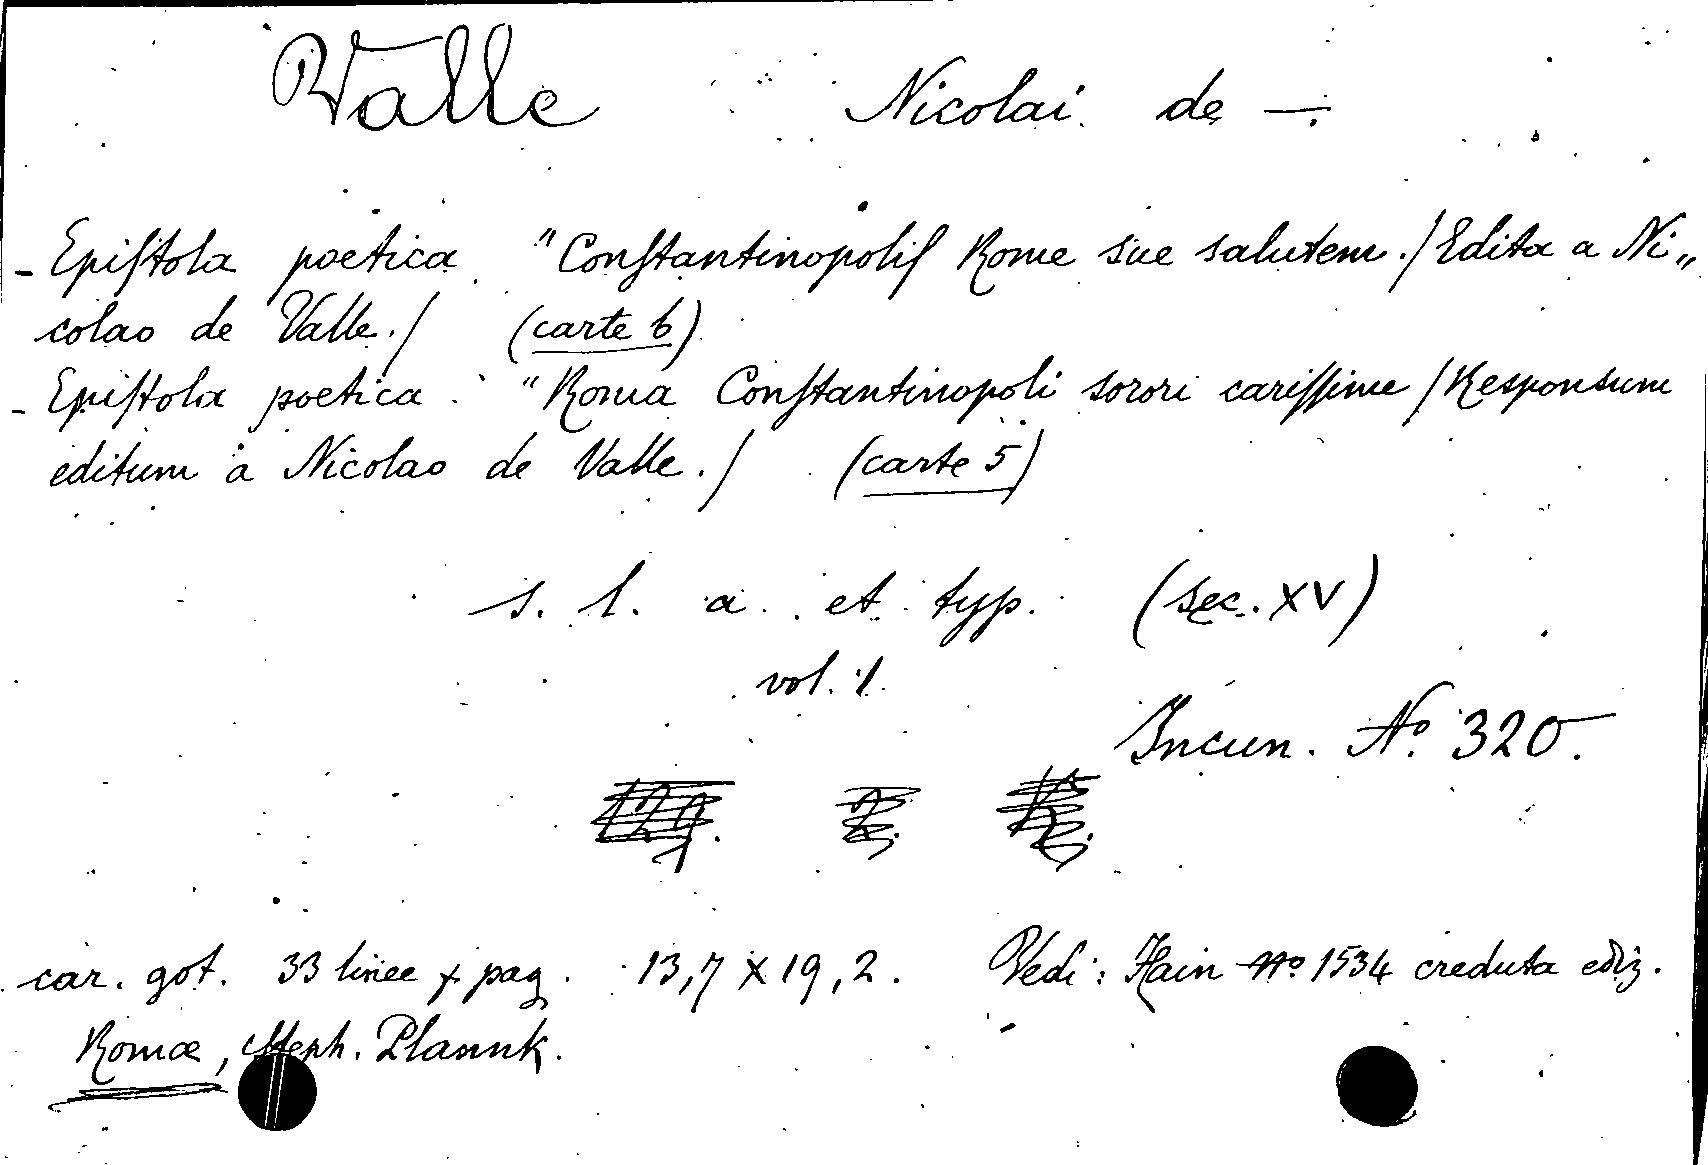 Valle Nicolai de —.
- Epiſtola poetica "Conſtantinopoliſ Rome sue salutem./Edita a Ni„
colao de Valle./ (carte 6)
- Epiſtola poetica "Roma Conſtantinopoli sorori cariſſime /Responsum
editum a Nicolao de Valle./ (carte 5)
s. l. a. et typ. (sec. XV)
vol. 1.
Incun. Nº. 320.
car. got. 33 linee x pag. 13,7 X 19,2. Vedi: Hain nº 1534 creduta ediz.
Romæ, Steph. Plannk.